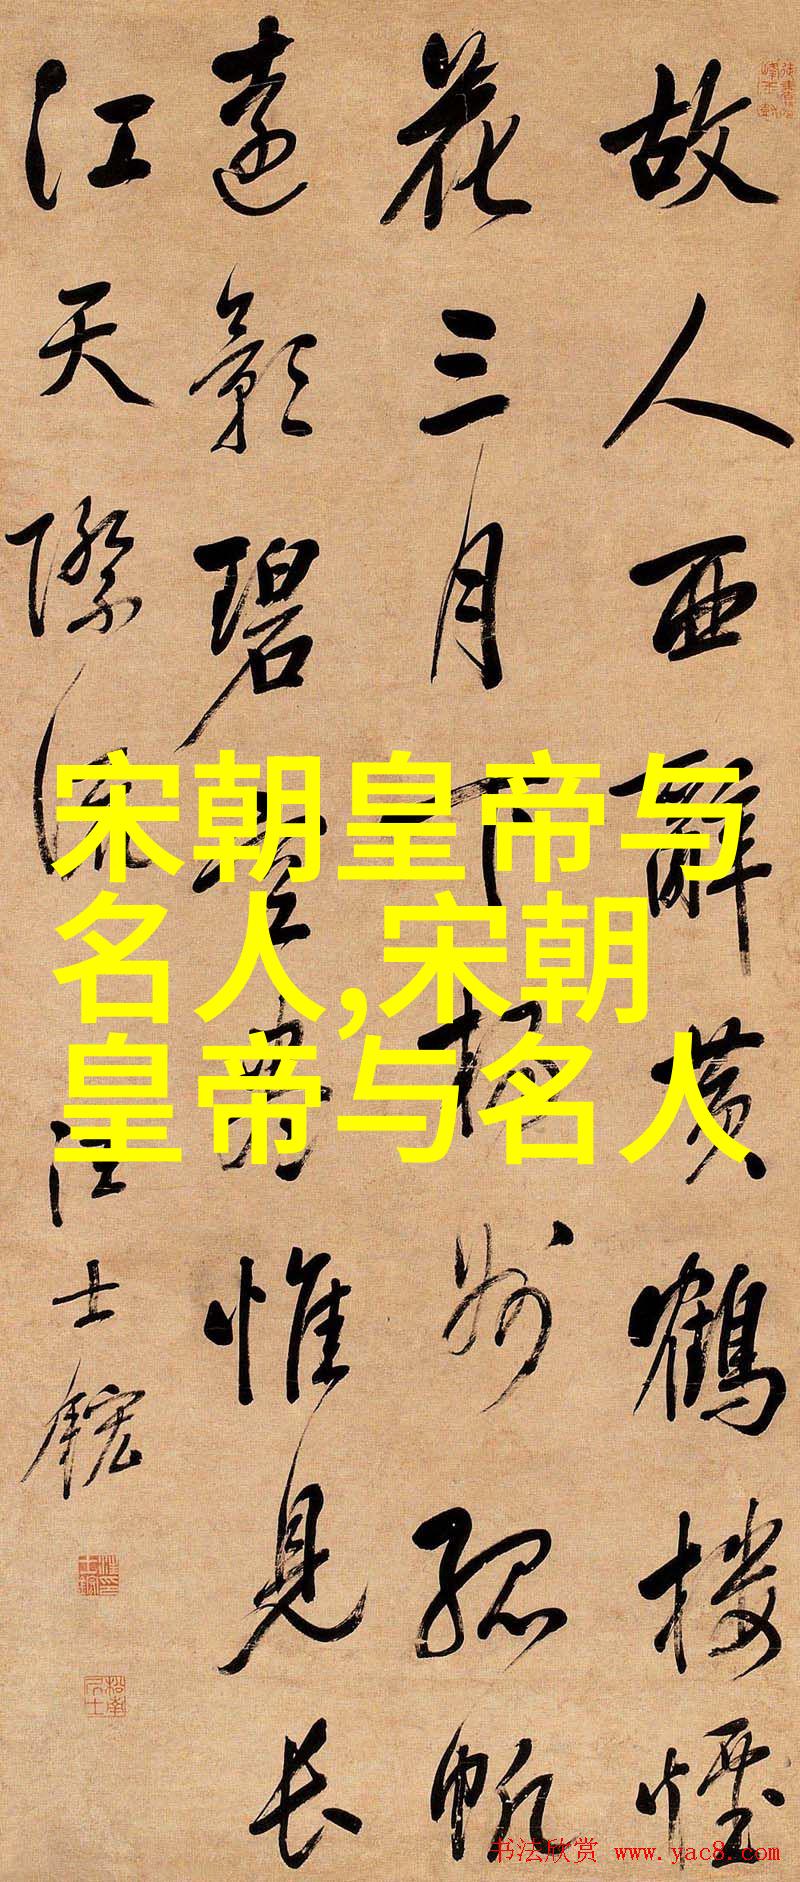 故人西辭黄鶴樓煙
花三月下揚州孤帆
遠影碧空盡惟見长
江天際流
汪士鋐
宋朝皇帝与
名人,宋朝
皇帝与名人
书法欣赏 www.yac8.com